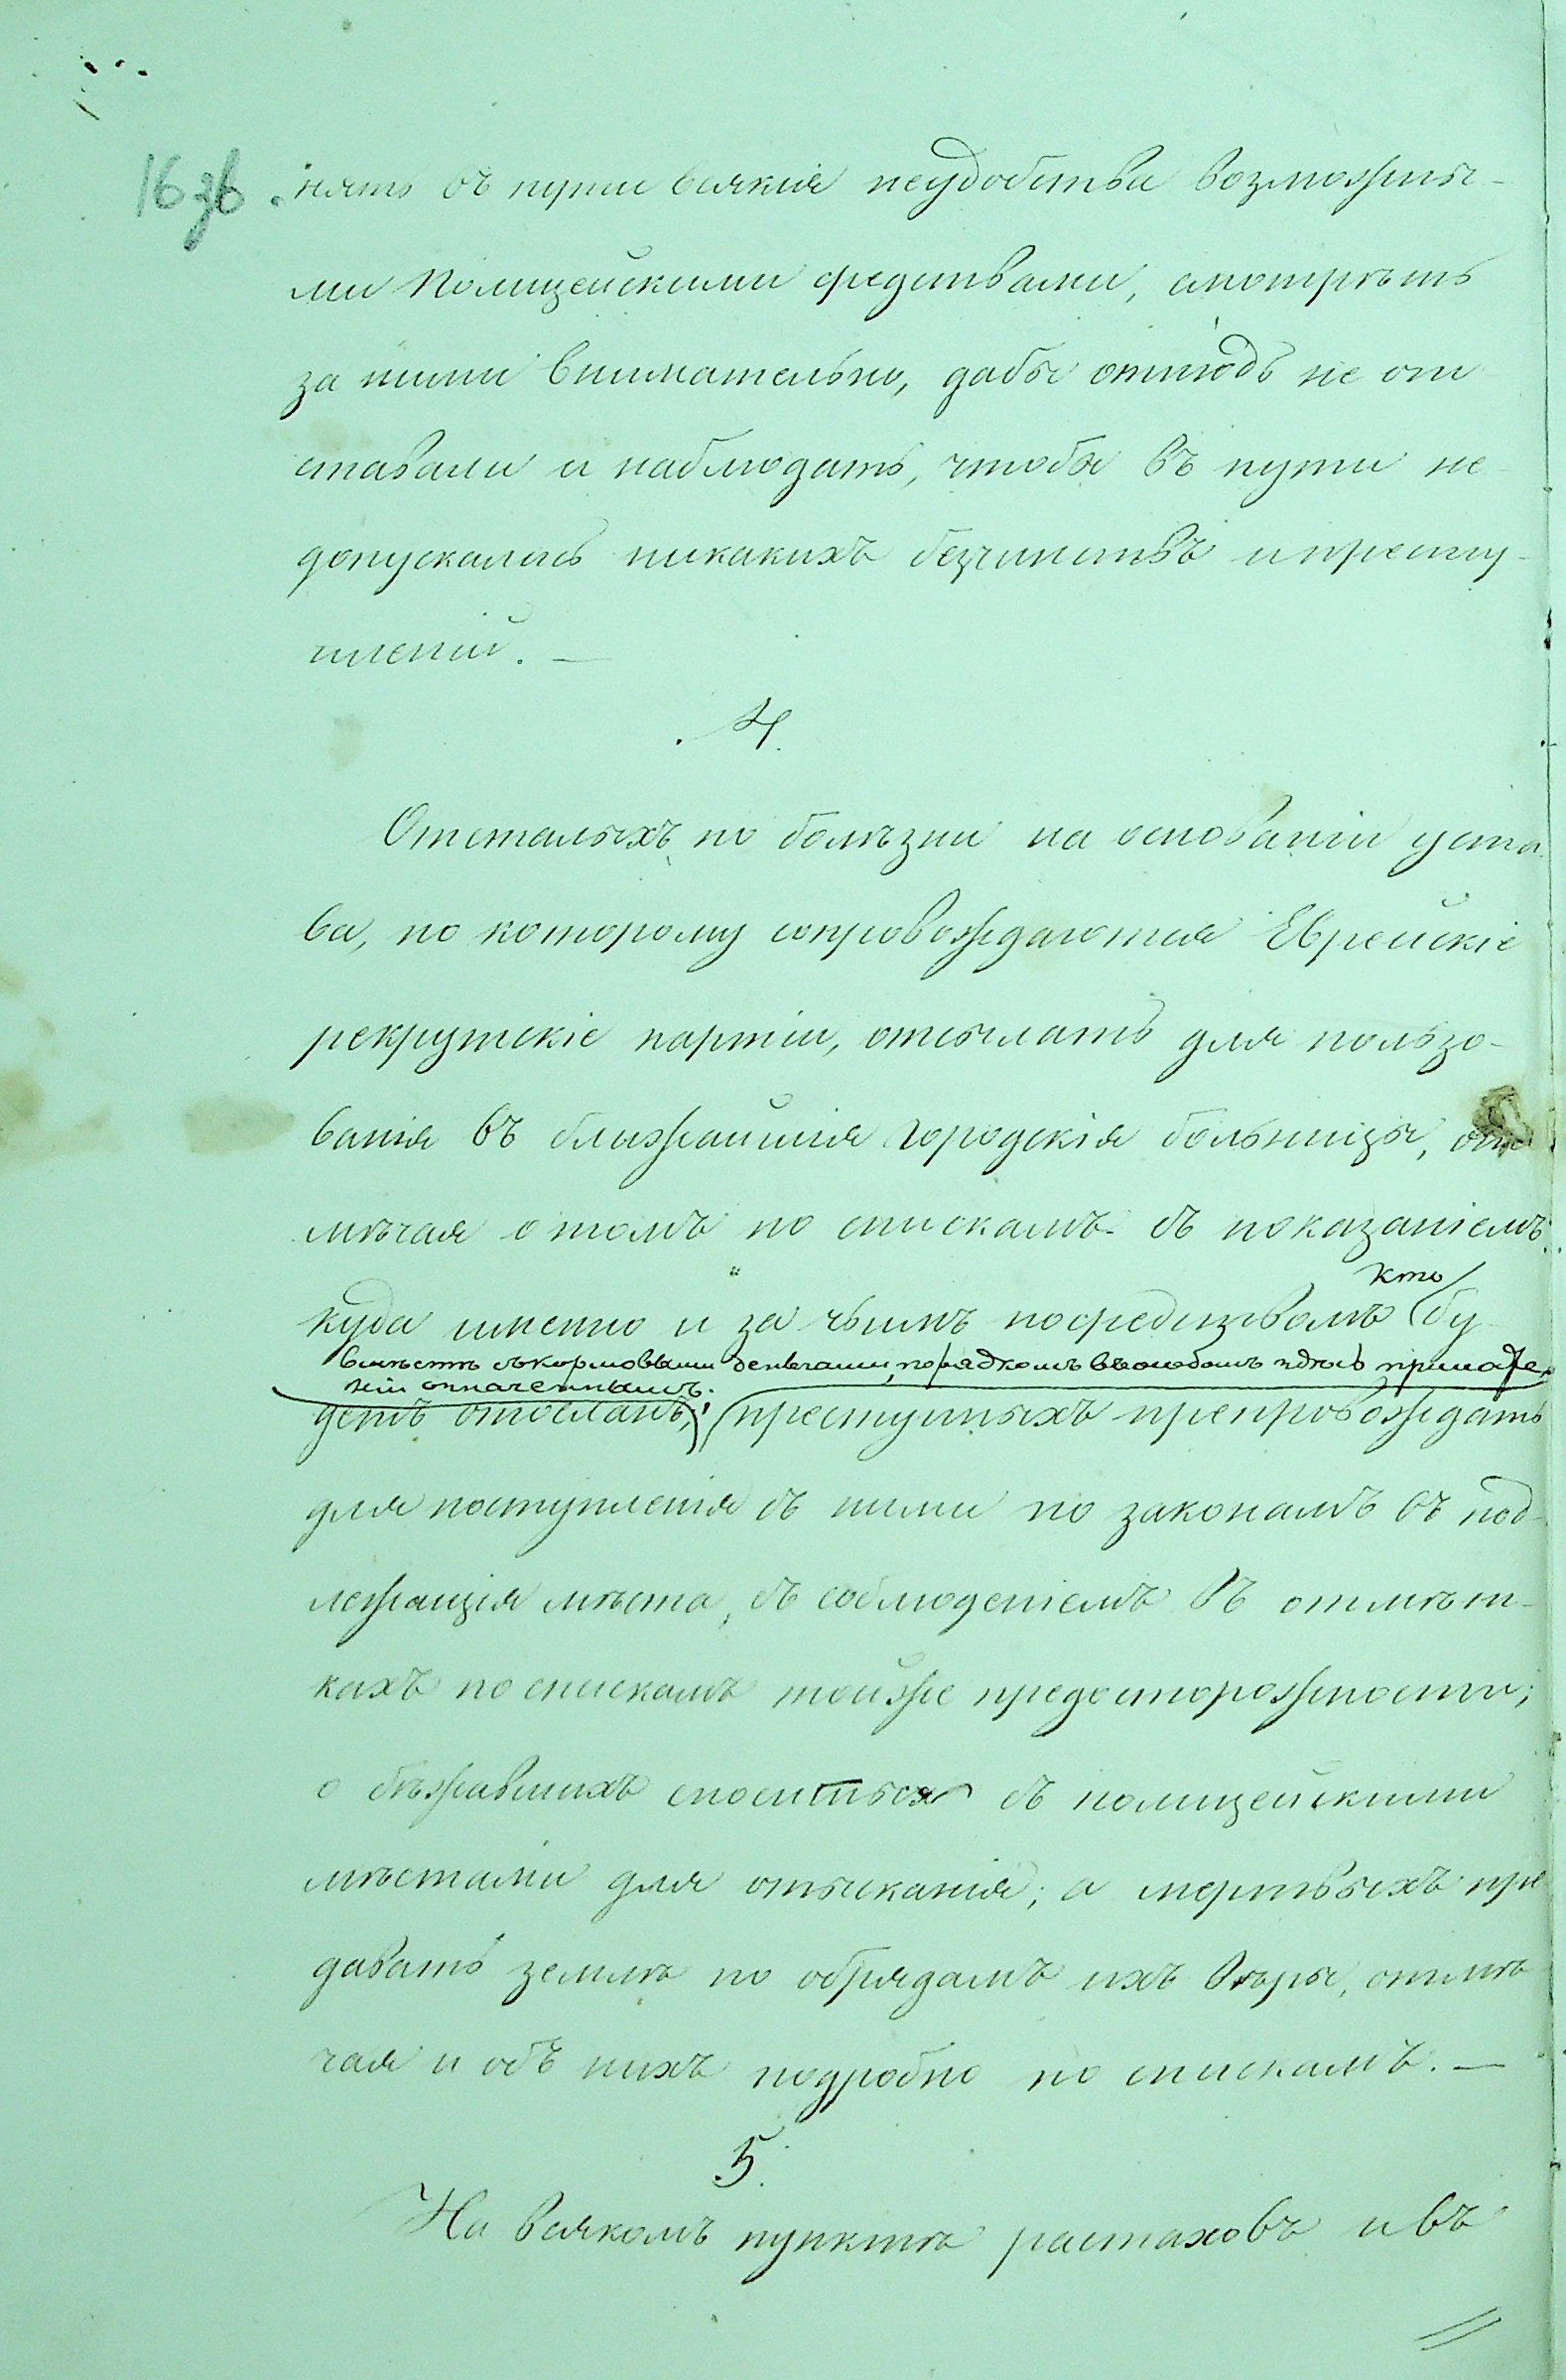 16 зв.
нять въ пути всякія неудобства возможны-
ми Полицейскими средствами, смотрѣть
за ними внимательно, дабы отнюдь не от
ставали и наблюдать, чтобы въ пути не-
допускались никакихъ безчинствъ и престу-
пленій. —
4.
Отсталыхъ по болѣзни на основаніи уста
ва, по которому сопровождаются Еврейскіе
рекрутскіе партіи, отсылать для пользо-
ванія въ ближайшія городскія больницы, от
мѣчая о томъ по спискамъ съ показаніемъ
кто
куда именно и за чьимъ посредствомъ бу-
вмѣстѣ съ кормовыми деньгами, порядкомъ въ особомъ здѣсь приложе-
ніи означеннымъ.
детъ отосланъ; преступныхъ препровождать
для поступленія съ ними по законамъ въ под-
лежащія мѣста, съ соблюденіемъ въ отмѣт-
кахъ по спискамъ тойже предосторожности;
о бѣжавшихъ сноситься съ полицейскими
мѣстами для отысканія; а мертвыхъ пре
давать землѣ по обрядамъ ихъ вѣры, отмѣ
чая и объ нихъ подробно по спискамъ. —
5.
На всякомъ пунктѣ растаховъ и въ